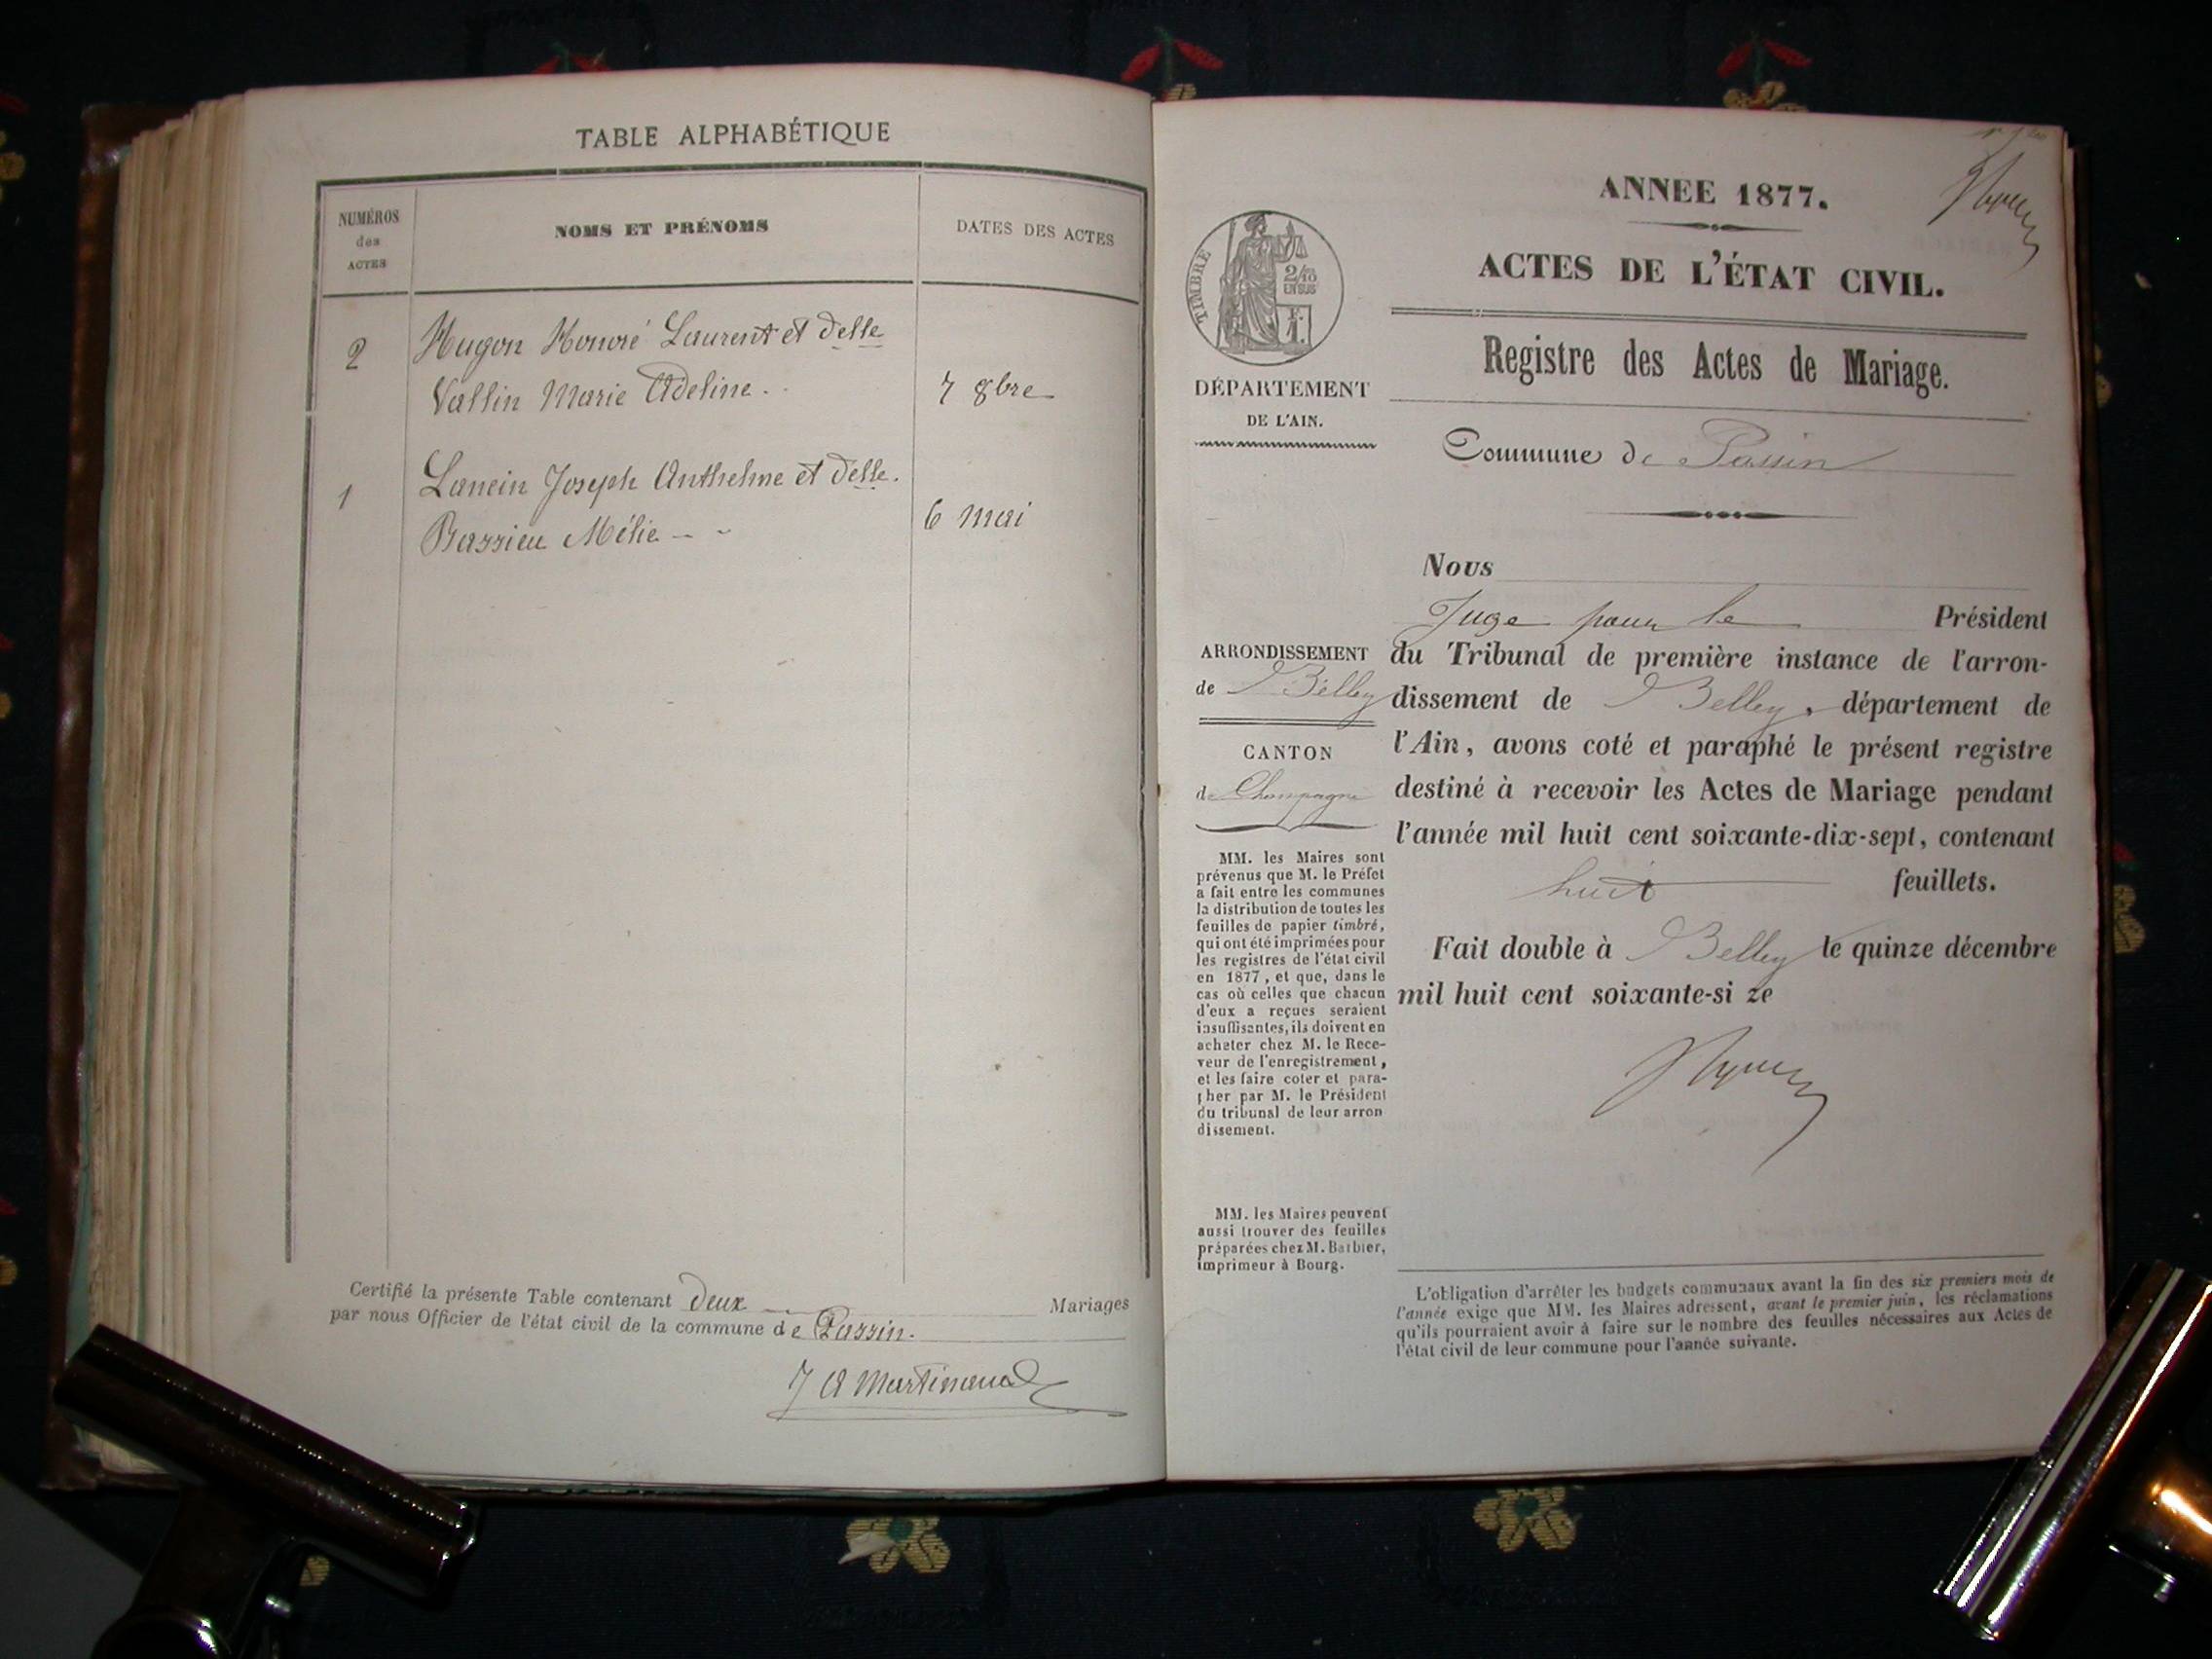 TABLE ALPHABÉTIQUE
NUMÉROS
des
ACTES
NOMS ET PRÉNOMS
DATES DES ACTES
2
Hugon Honoré Laurent et delle
Vallin Marie Adeline.
7 8bre
1
Lanein Joseph Anthelme et delle.
Bassieu Mélie
6 mai
Certifié la présente Table contenant deux Mariages
par nous Officier de l'état civil de la commune de Passin.
J A Martinand
ANNEE 1877.
ACTES DE L'ÉTAT CIVIL.
Registre des Actes de Mariage.
Commune de Passin
TIMBRE
2/10
EN SUS
1 F.
DÉPARTEMENT
DE L'AIN.
ARRONDISSEMENT
de Belley
CANTON
de Champagne
MM. les Maires sont
prévenus que M. le Préfet
a fait entre les communes
la distribution de toutes les
feuilles de papier timbré,
qui ont été imprimées pour
les registres de l'état civil
en 1877, et que, dans le
cas où celles que chacun
d'eux a reçues seraient
insuffisantes, ils doivent en
acheter chez M. le Rece-
veur de l'enregistrement,
et les faire coter et para-
pher par M. le Président
du tribunal de leur arron
dissement.
MM. les Maires peuvent
aussi trouver des feuilles
préparées chez M. Barbier,
imprimeur à Bourg.
Nous
Juge pour le Président
du Tribunal de première instance de l'arron-
dissement de Belley, département de
l'Ain, avons coté et paraphé le présent registre
destiné à recevoir les Actes de Mariage pendant
l'année mil huit cent soixante-dix-sept, contenant
huit feuillets.
Fait double à Belley le quinze décembre
mil huit cent soixante-si ze
L'obligation d'arrêter les budgets communaux avant la fin des six premiers mois de
l'année exige que MM. les Maires adressent, avant le premier juin, les réclamations
qu'ils pourraient avoir à faire sur le nombre des feuilles nécessaires aux Actes de
l'état civil de leur commune pour l'année suivante.